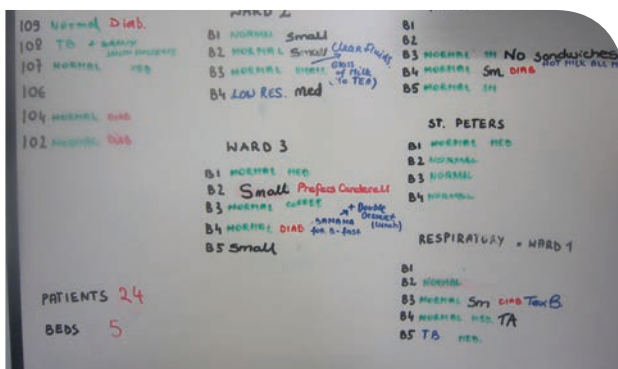 109 Normal Diab.
108 TB + GRAVY
107 NORMAL MED
106
104 NORMAL DIAB
102 NORMAL DIAB
PATIENTS 24
BEDS 5
WARD 2
B1 NORMAL Small
B2 NORMAL Small Clear Fluids.
B3 NORMAL SMALL Glass of Milk (to TEA)
B4 LOW RES. Med
WARD 3
B1 NORMAL MED
B2 Small Prefers Canderell
B3 NORMAL
B4 NORMAL DIAB BANANA for B-fast + Double Dessert (Lunch)
B5 Small
B1
B2
B3 NORMAL SM No sandwiches
B4 NORMAL Sm DIAB HOT MILK ALL M
B5 NORMAL SM
ST. PETERS
B1 NORMAL MED
B2 NORMAL
B3 NORMAL
B4 NORMAL
RESPIRATORY • WARD 1
B1
B2 NORMAL
B3 NORMAL Sm DIAB Tex B
B4 NORMAL MED. TA
B5 TB MED.